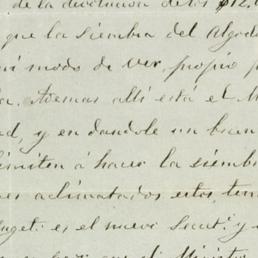 de la devolucion de los $12.
que la siembra del Algod
mi modo de ver, propio p
Ademas allí está el M
ad, y en dandole un buen
imiten á hacer la siembr
es aclimatados estos, ten
es el nuevo y
el Ministro